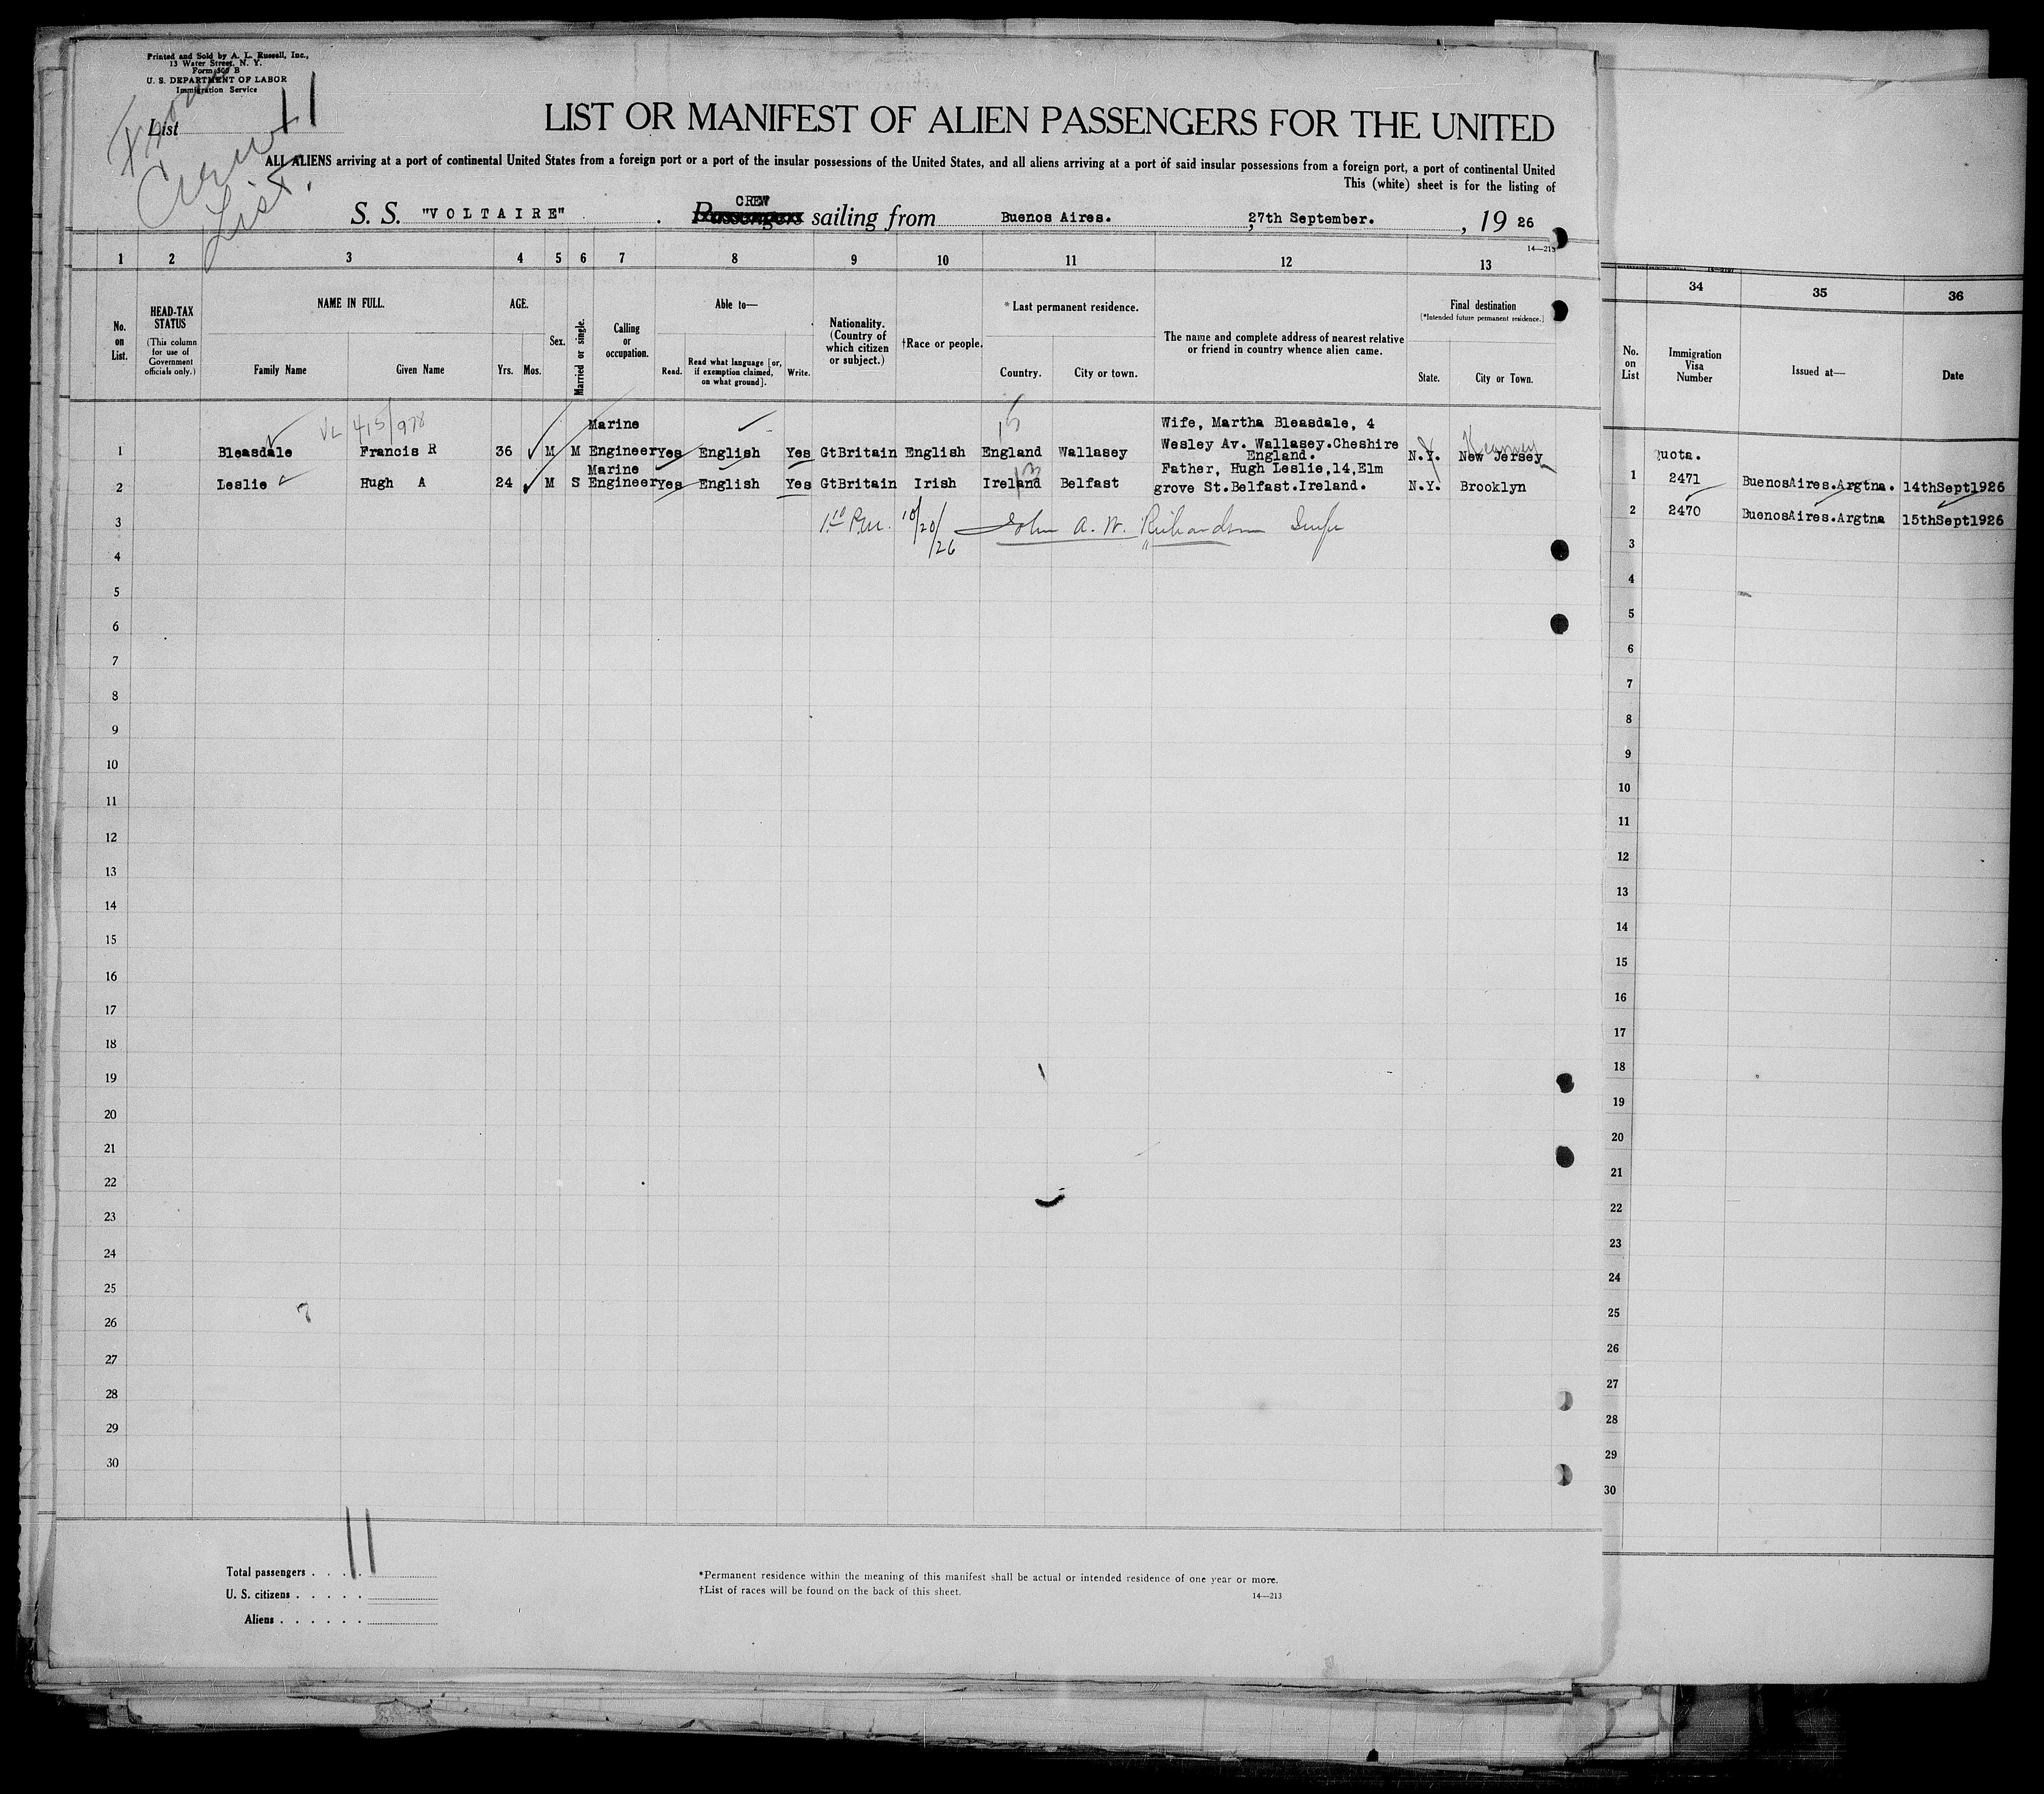 Printed and Sold by A. L. Russell, Inc.,
13 Water Street, N. Y.
Form 500 B
U. S. DEPARTMENT OF LABOR
Immigration Service
List 11
From
Crew
List.
LIST OR MANIFEST OF ALIEN PASSENGERS FOR THE UNITED
ALL ALIENS arriving at a port of continental United States from a foreign port or a port of the insular possessions of the United States, and all aliens arriving at a port of said insular possessions from a foreign port, a port of continental United
This (white) sheet is for the listing of
CREW
S. S. "VOLTAIRE" . Passengers sailing from Buenos Aires. , 27th September. , 19 26
14—213
1 2 3 4 5 6 7 8 9 10 11 12 13
34 35 36
No. on List.
HEAD-TAX STATUS
(This column for use of Government officials only.)
NAME IN FULL.
Family Name Given Name
AGE.
Yrs. Mos.
Sex.
Married or single.
Calling or occupation.
Able to—
Read. Read what language [or, if exemption claimed, on what ground]. Write.
Nationality. (Country of which citizen or subject.)
†Race or people.
* Last permanent residence.
Country. City or town.
The name and complete address of nearest relative or friend in country whence alien came.
Final destination
[*Intended future permanent residence.]
State. City or Town.
No. on List
Immigration Visa Number
Issued at—
Date
415/978 Marine 15 Wife, Martha Bleasdale, 4
1 Bleasdale Francis R 36 M M Engineer Yes English Yes GtBritain English England Wallasey Wesley Av. Wallasey.Cheshire England. N.Y. New Jersey
Kearney
Marine 13 Father, Hugh Leslie,14,Elm
2 Leslie Hugh A 24 M S Engineer Yes English Yes GtBritain Irish Ireland Belfast grove St.Belfast.Ireland. N.Y. Brooklyn
Quota.
1 2471 BuenosAires.Argtna. 14thSept1926
2 2470 BuenosAires.Argtna 15thSept1926
3 1 10 P.M. 10/20/26 John A. W. Richardson
4
5
6
7
8
9
10
11
12
13
14
15
16
17
18
19
20
21
22
23
24
25
26
27
28
29
30
3
4
5
6
7
8
9
10
11
12
13
14
15
16
17
18
19
20
21
22
23
24
25
26
27
28
29
30
Total passengers . . . . 11
U. S. citizens . . . . .
Aliens . . . . . .
*Permanent residence within the meaning of this manifest shall be actual or intended residence of one year or more.
†List of races will be found on the back of this sheet.
14—213